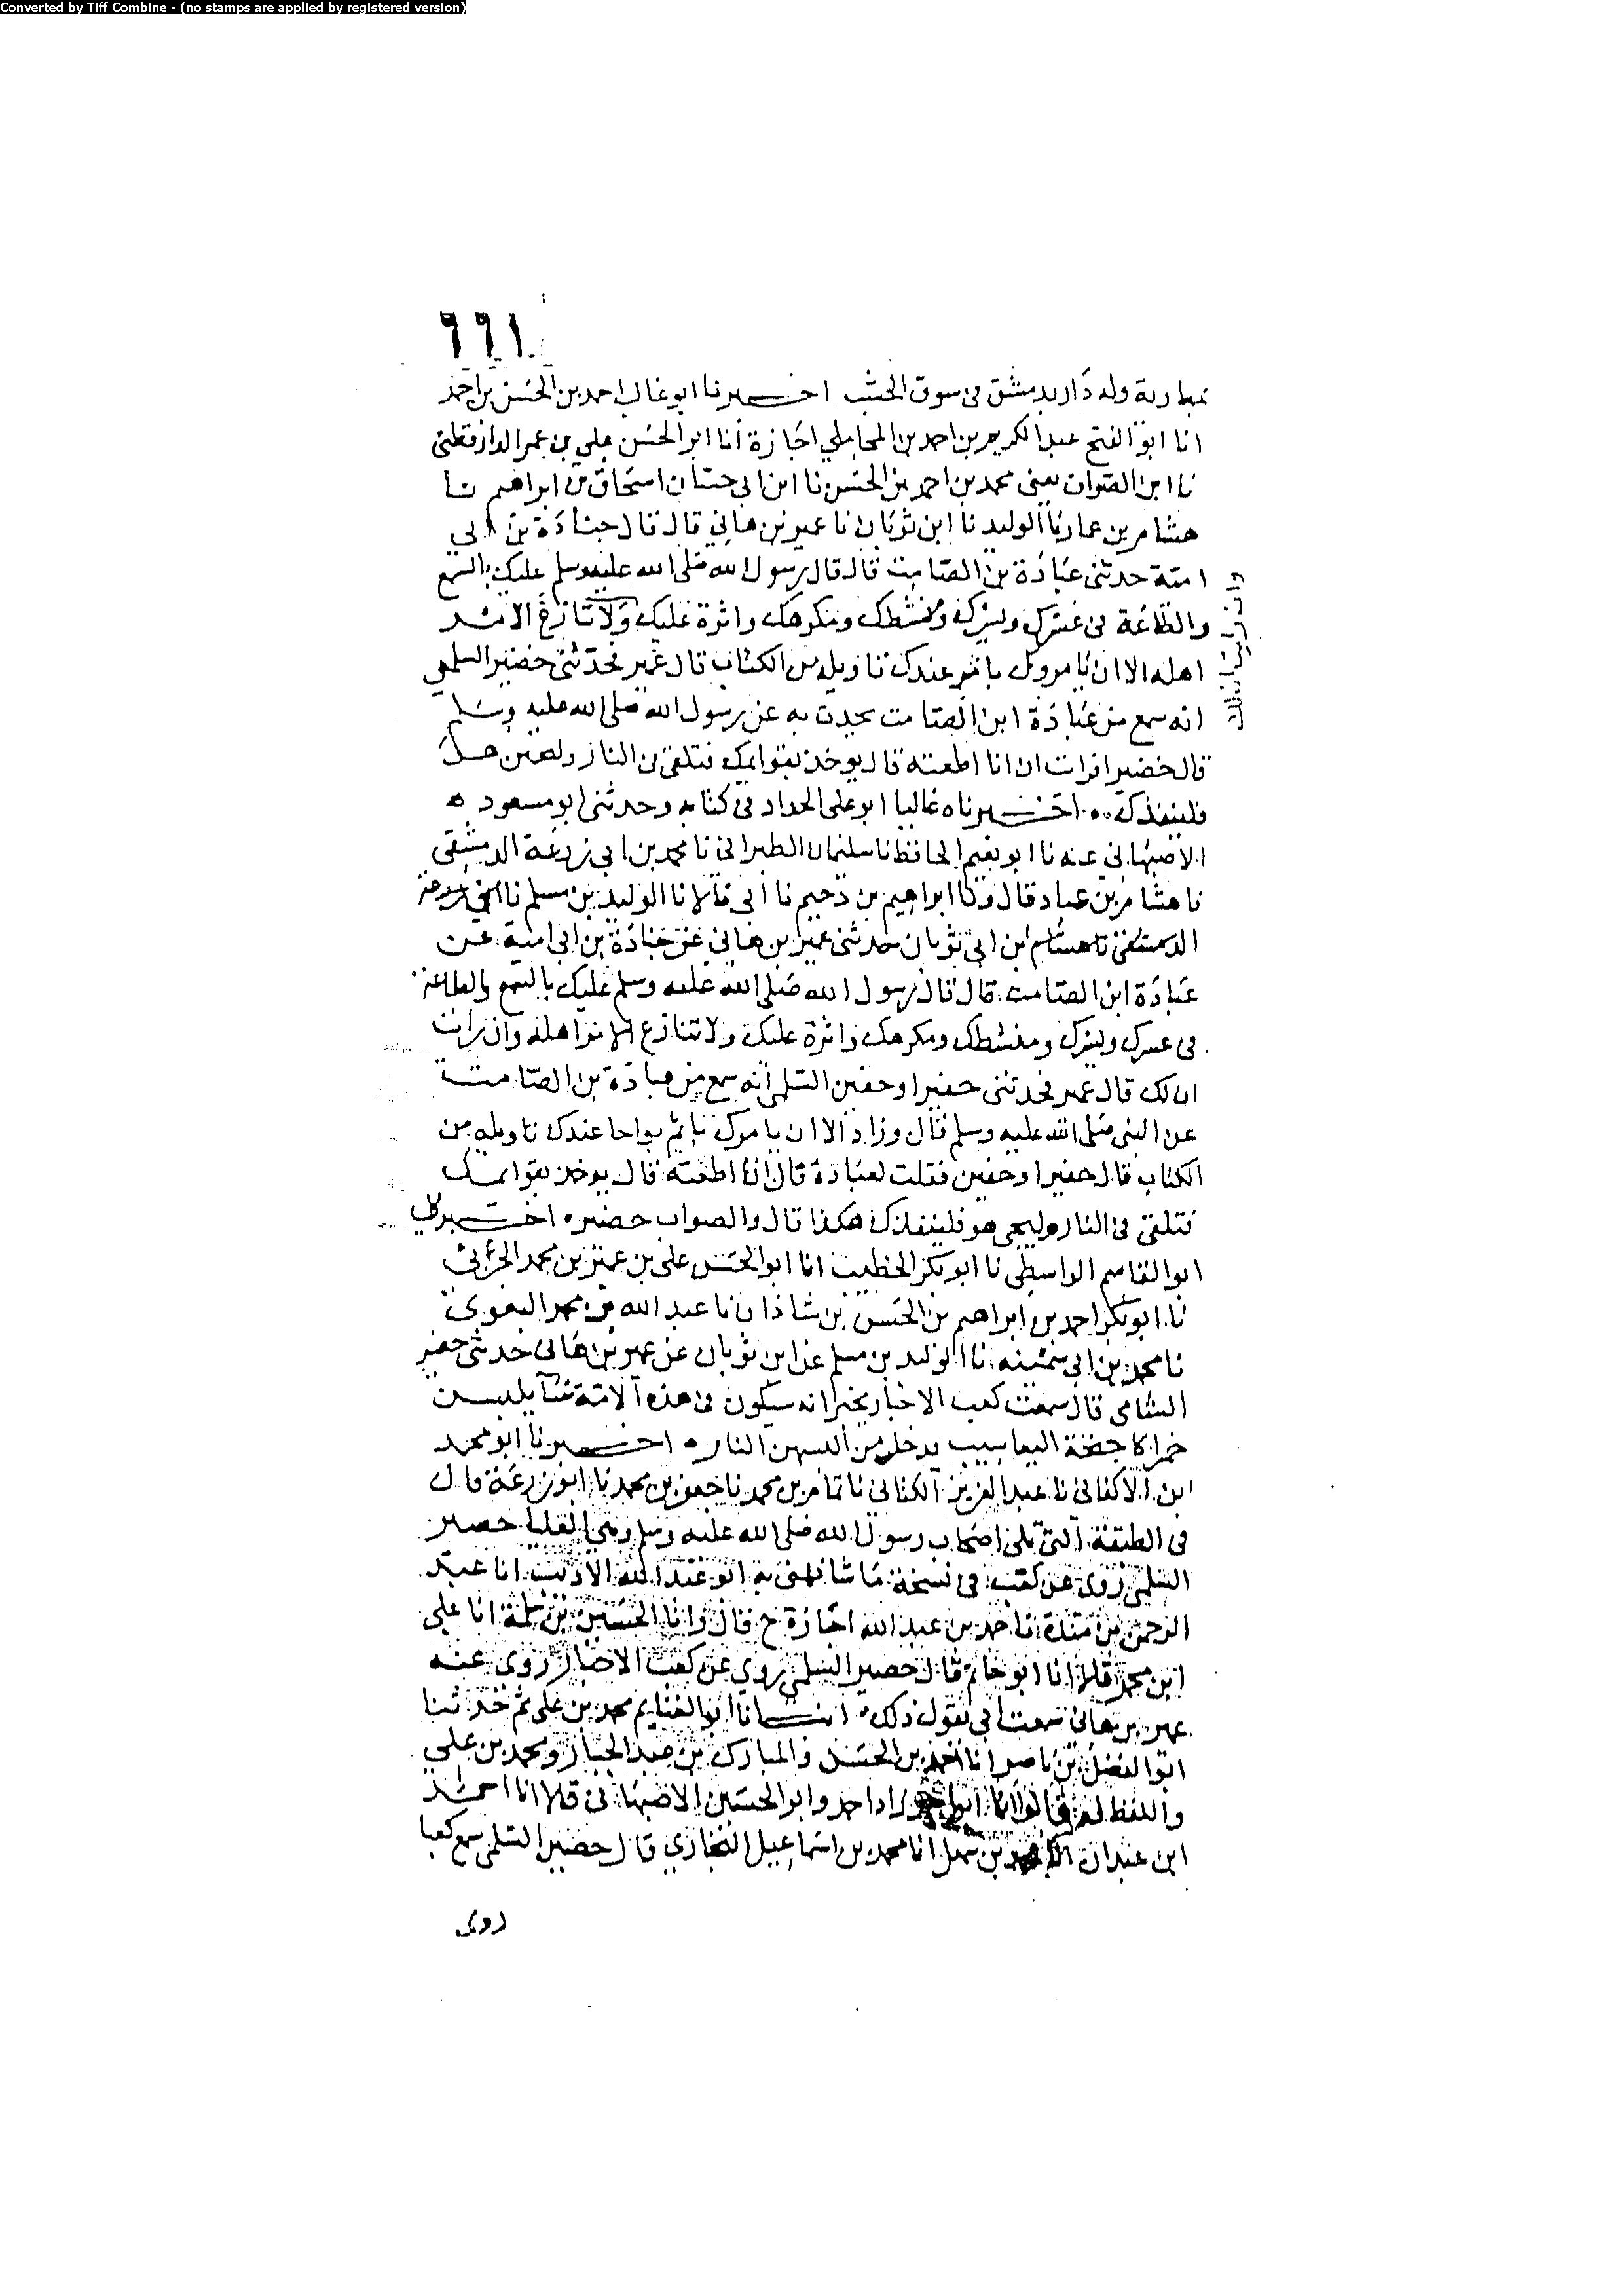 Converted by Tiff Combine - (no stamps are applied by registered version)
٦٦١
وله دار بدمشق في سوق اخبرنا ابو غالب احمد بن الحسن بن احمد
انا ابو الفتح عبد الكريم بن احمد بن المحاملي اجازة أنا ابو الحسن علي بن عمر الدارقطني
نا ابن الصواف يعني محمد بن احمد بن الحسن نا ابن ابي حسان اسحاق بن ابراهيم نا
هشام بن عمار نا الوليد نا ابن ثوبان نا عمير بن هاني قال قال جنادة بن ابي
امية حدثني عبادة بن الصامت قال قال رسول الله صلى الله عليه وسلم عليك بالسمع
والطاعة في عسرك ويسرك ومنشطك ومكرهك واثرة عليك ولا تنازع الامر
اهله الا ان يامروك باثم عندك تاويله من الكتاب قال عمير فحدثني خضير السلمي
انه سمع من عبادة ابن الصامت يحدث به عن رسول الله صلى الله عليه وسلم
قال خضير افرات ان انا اطعته قال يوخذ بقوائمك فتلقى في النار
فلينقذك اخبرناه عاليا ابو علي الحداد في كتابه وحدثني ابو مسعود ه
الاصبهاني عنه نا ابو نعيم الحافظ نا سليمان الطبراني نا محمد بن ابي زرعة الدمشقي
نا هشام بن قال ونا ابراهيم بن دحيم نا ابي قالا نا الوليد بن مسلم نا
ابن ابي ثوبان حدثني عمير بن هاني عن جنادة بن ابي امية عن
عبادة ابن الصامت قال قال رسول الله صلى الله عليه وسلم عليك بالسمع والطاعة
في عسرك ويسرك ومنشطك ومكرهك واثرة عليك ولا تنازع الامر اهله وان رايت
ان لك قال عمير فحدثني حضير او حضين السلمي أنه سمع من عبادة بن الصامت
عن النبي صلى الله عليه وسلم قال وزاد الا ان يامرك باثم بواحا عندك تاويله من
الكتاب قال حضير او حضين فقلت لعبادة فان انا اطعته قال يوخذ بقوائمك
فتلقى في النار وليجي هو فلينقذك هكذا قال والصواب حضير ه اخبرني
ابو القاسم الواسطي نا ابو بكر الخطيب انا ابو الحسن علي بن عمر بن محمد الحربي
نا ابو بكر احمد بن ابراهيم بن الحسن بن شاذان نا عبد الله بن محمد البغوي
نا محمد بن ابي سمينه نا الوليد بن مسلم عن ابن ثوبان عن عمير بن هاني حدثني حضير
السامي قال سمعت كعب الاحبار يخبر انه سيكون في هذه الامة نسآ يلبسن
خمرا كاجنحة اليعاسيب يدخل من البسهن النار ه اخبرنا ابو محمد
ابن الاكفاني نا عبد العزيز الكتاني نا تمام بن محمد نا جعفر بن محمد نا ابو زرعة قال
في الطبقة التي تلي اصحاب رسول الله صلى الله عليه وسلم وهي العليا حضير
السلمي روى عن كعب في نسخة ما شافهني به ابو عبد الله الاديب انا عبد
الرحمن بن مندة نا حمد بن عبد الله اجازة ح قال وانا الحسين بن سلمة انا علي
ابن محمد قالا انا ابو حاتم قال حضير السلمي روى عن كعب الاحبار روى عنه
عمير بن هاني سمعت ابي يقول ذلك ه انبانا ابو الغنايم محمد بن علي ثم حدثنا
ابو الفضل بن ناصر انا احمد بن الحسن والمبارك بن عبد الجبار ومحمد بن علي
واللفظ له قالوا انا ابو زاد احمد وابو الحسين الاصبهاني قالا انا احمد
ابن عبدان انا محمد بن سهل انا محمد بن اسماعيل البخاري قال حضير السلمي سمع كعبا
روى